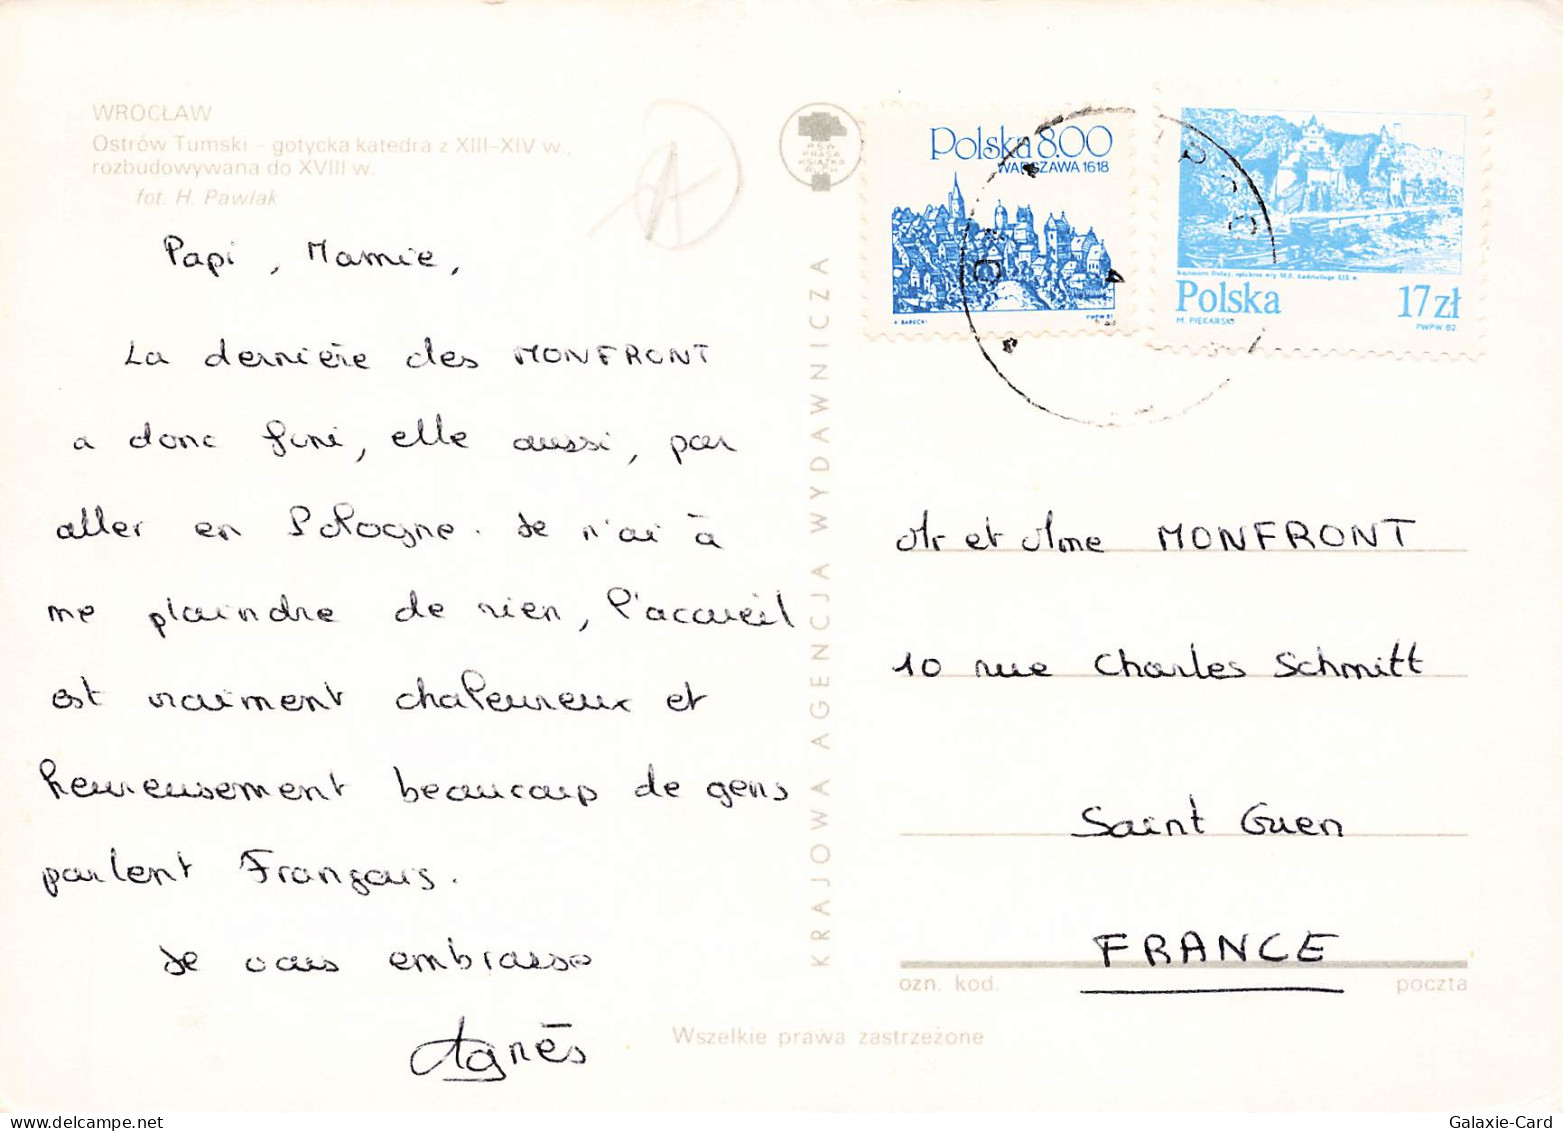 WROCŁAW
Ostrów Tumski – gotycka katedra z XIII–XIV w.,
rozbudowywana do XVIII w.
fot. H. Pawlak
Papi, Mamie,
La dernière des MONFRONT
a donc fini, elle aussi, par
aller en Pologne. Je n'ai à
me plaindre de rien, l'accueil
est vraiment chaleureux et
heureusement beaucoup de gens
parlent Français.
Je vous embrasse
Agnès
RSW
PRASA
KSIĄŻKA
RUCH
KRAJOWA AGENCJA WYDAWNICZA
Polska 8.00
WARSZAWA 1618
A. BARECKI
PWPW 81
Polska 17 zł
M. PIEKARSKI
PWPW 82
Mr et Mme MONFRONT
10 rue Charles Schmitt
Saint Ouen
FRANCE
ozn. kod.
poczta
Wszelkie prawa zastrzeżone
Galaxie-Card